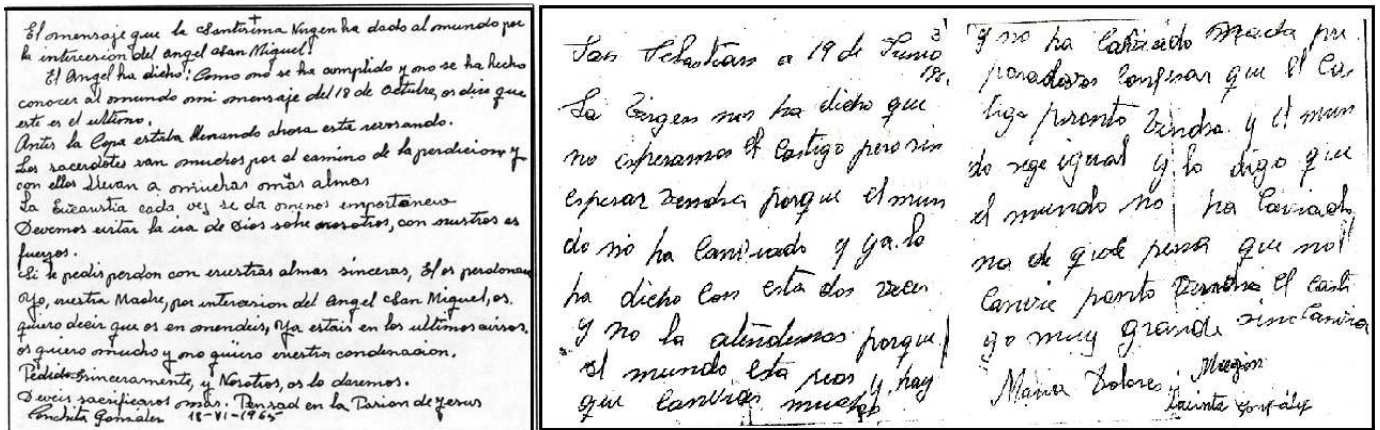 El mensaje que la Santísima Virgen ha dado al mundo por
la intercesión del angel San Miguel!
El Angel ha dicho: Como no se ha cumplido y no se ha hecho
conocer al mundo mi mensaje del 18 de octubre, os dire que
este es el ultimo.
Antes la Copa estaba llenando ahora esta revosando.
Los sacerdotes van muchos por el camino de la perdicion y
con ellos llevan a muchas más almas
La Eucaristia cada vez se da menos importancia
Devemos evitar la ira de Dios sobre nosotros, con nuestros es
fuerzos.
Si le pedis perdon con vuestras almas sinceras, El os perdonara
Yo, vuestra Madre, por intercesion del angel San Miguel, os
quiero decir que os enmendeis, Ya estais en los ultimos avisos.
os quiero mucho y no quiero vuestra condenacion.
Pedidos sinceramente, y Nosotros, os lo daremos.
Deveis sacrificaros mas. Pensad en la Pasion de Jesus
Conchita González 18-VI-1965
San Sebastian a 19 de Junio
La Virgen nos ha dicho que
no esperamos el castigo pero sin
esperar vendra porque el mun
do no ha canviado y ya lo
ha dicho con esta dos veces
y no la atendemos porque
el mundo esta peor y hay
que canviar mucho
y no ha canviado nada pre
pararos confesar que el Cas
tigo pronto vendra y el mun
do sege igual y lo digo que
el mundo no ha canviado
na de que pena que no
canvie pronto vendra el casti
go muy grande sino canvia
Maria Dolores y Mazon
Jacinta González